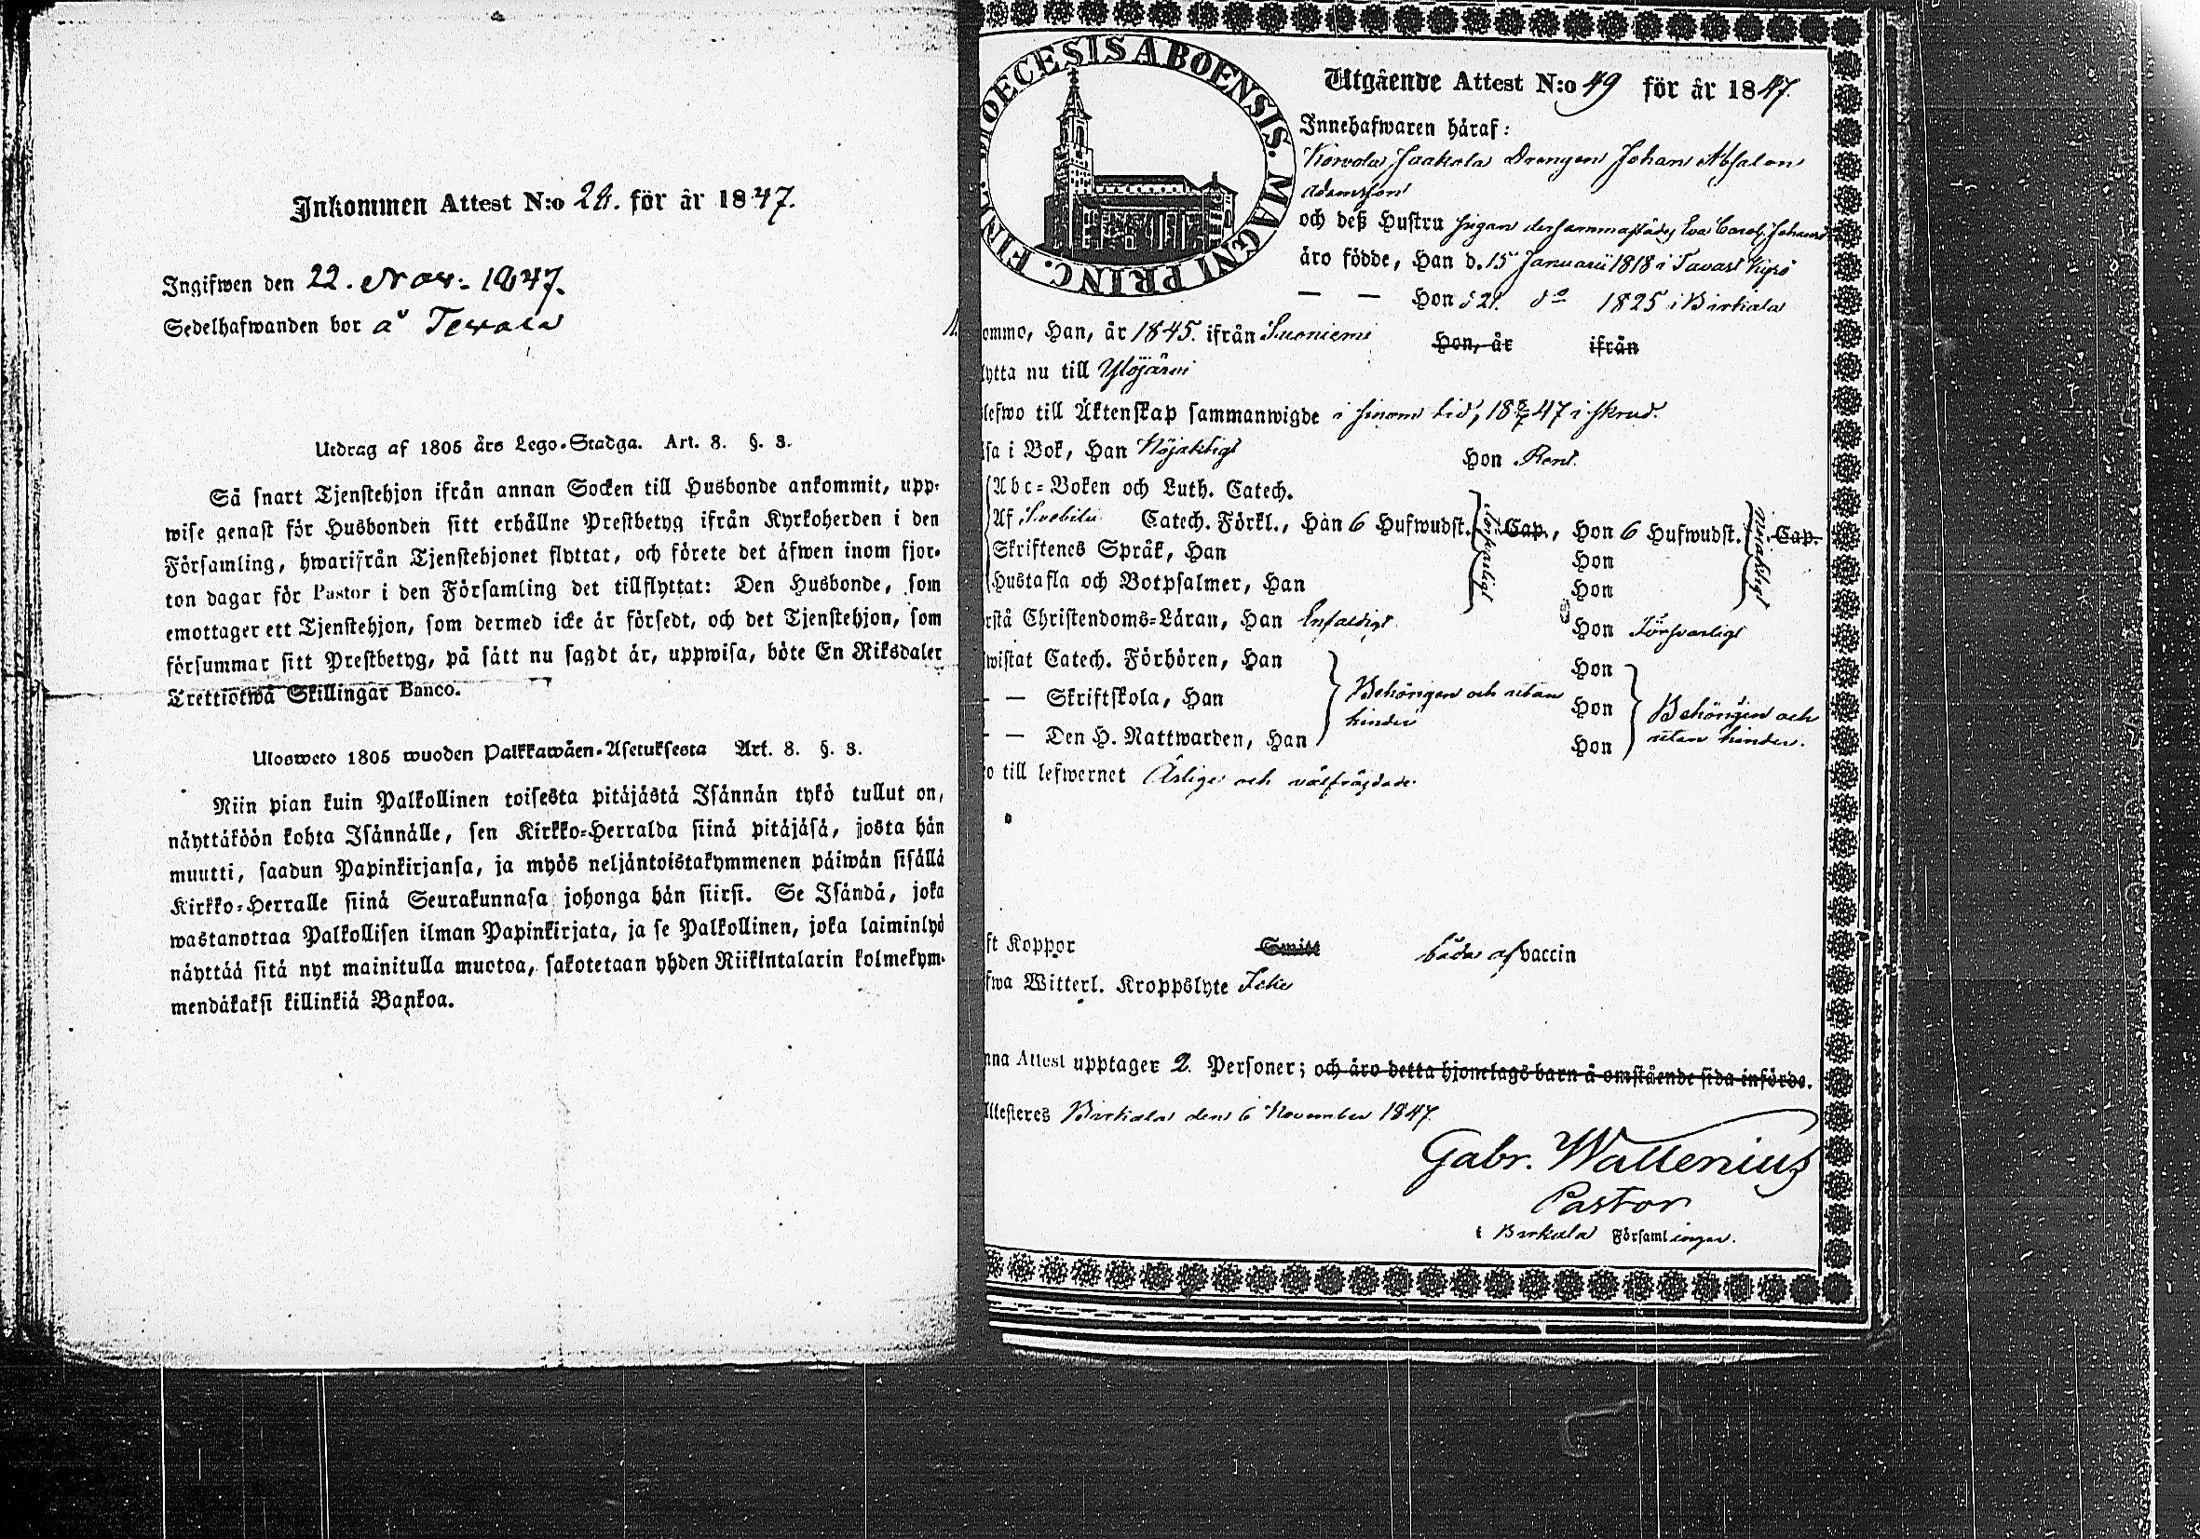 Inkommen Attest N:o 28. för år 1847.
Ingifwen den 22. Nov. 1847.
Sedelhafwanden bor å
Utdrag af 1805 års Lego-Stadga. Art. 8. §. 3.
Så snart Tjenstehjon ifrån annan Socken till Husbonde ankommit, upp-
wise genast för Husbonden sitt erhållne Prestbetyg ifrån Kyrkoherden i den
Församling, hwarifrån Tjenstehjonet flyttat, och förete det äfwen inom fjor-
ton dagar för Pastor i den Församling det tillflyttat: Den Husbonde, som
emottager ett Tjenstehjon, som dermed icke är försedt, och det Tjenstehjon, som
försummar sitt Prestbetyg, på sätt nu sagdt är, uppwisa, böte En Riksdaler
Trettiotwå Skillingar Banco.
Ulosweto 1805 wuoden Palkkawäen-Asetuksesta Art. 8. §. 3.
Niin pian kuin Palkollinen toisesta pitäjästä Isännän tykö tullut on,
näyttäköön kohta Isännälle, sen Kirkko-Herralda siinä pitäjäsä, josta hän
muutti, saadun Papinkirjansa, ja myös neljäntoistakymmenen päiwän sisällä
Kirkko-Herralle siinä Seurakunnasa johonga hän siirsi. Se Isändä, joka
wastanottaa Palkollisen ilman Papinkirjata, ja se Palkollinen, joka laiminlyö
näyttää sitä nyt mainitulla muotoa, sakotetaan yhden Riikintalarin kolmekym-
mendäkaksi killinkiä Bankoa.
DIOECESIS ABOENSIS. MAGNI PRINC. FINL.
Utgående Attest N:o 49 för år 1847.
Innehafwaren häraf:
Korvola Jaakola Drengen Johan Absalon
Adamsson
och deß Hustru Pigan dersammastädes Eva Carol. Johansd
äro födde, Han d. 15 Januarii 1818 i Tavast Kyrö
— — Hon d 21. do 1825 i Birkala
omme, Han, år 1845. ifrån Suoniemi Hon, år ifrån
lytta nu till Ylöjärvi
lefwo till Äktenskap sammanwigde i sinom tid, 1847 i skrud.
sa i Bok, Han Nöjaktigt Hon Rent.
Abc-Boken och Luth. Catech.
Af Svebilii Catech. Förkl., Han 6 Hufwudst. Cap., Hon 6 Hufwudst. Cap.
Försvarligt Nöjaktligt
Skriftenes Språk, Han Hon
Hustafla och Botpsalmer, Han Hon
rstå Christendoms-Läran, Han Enfaldigt. Hon Försvarligt
wistat Catech. Förhören, Han Hon
— Skriftskola, Han Behörigen och utan hinder Hon Behörigen och
— Den H. Nattwarden, Han Hon utan hinder.
o till lefwernet Ärlige och välfrägdade.
ft Koppor Smitt båda af vaccin
fwa Witterl. Kroppslyte Icke
nna Attest upptager 2 Personer; och äro detta hjonelags barn å omstående sida införde.
Attesteres Birkala den 6 November 1847.
Gabr. Wallenius
Pastor
i Birkala Församlingar.